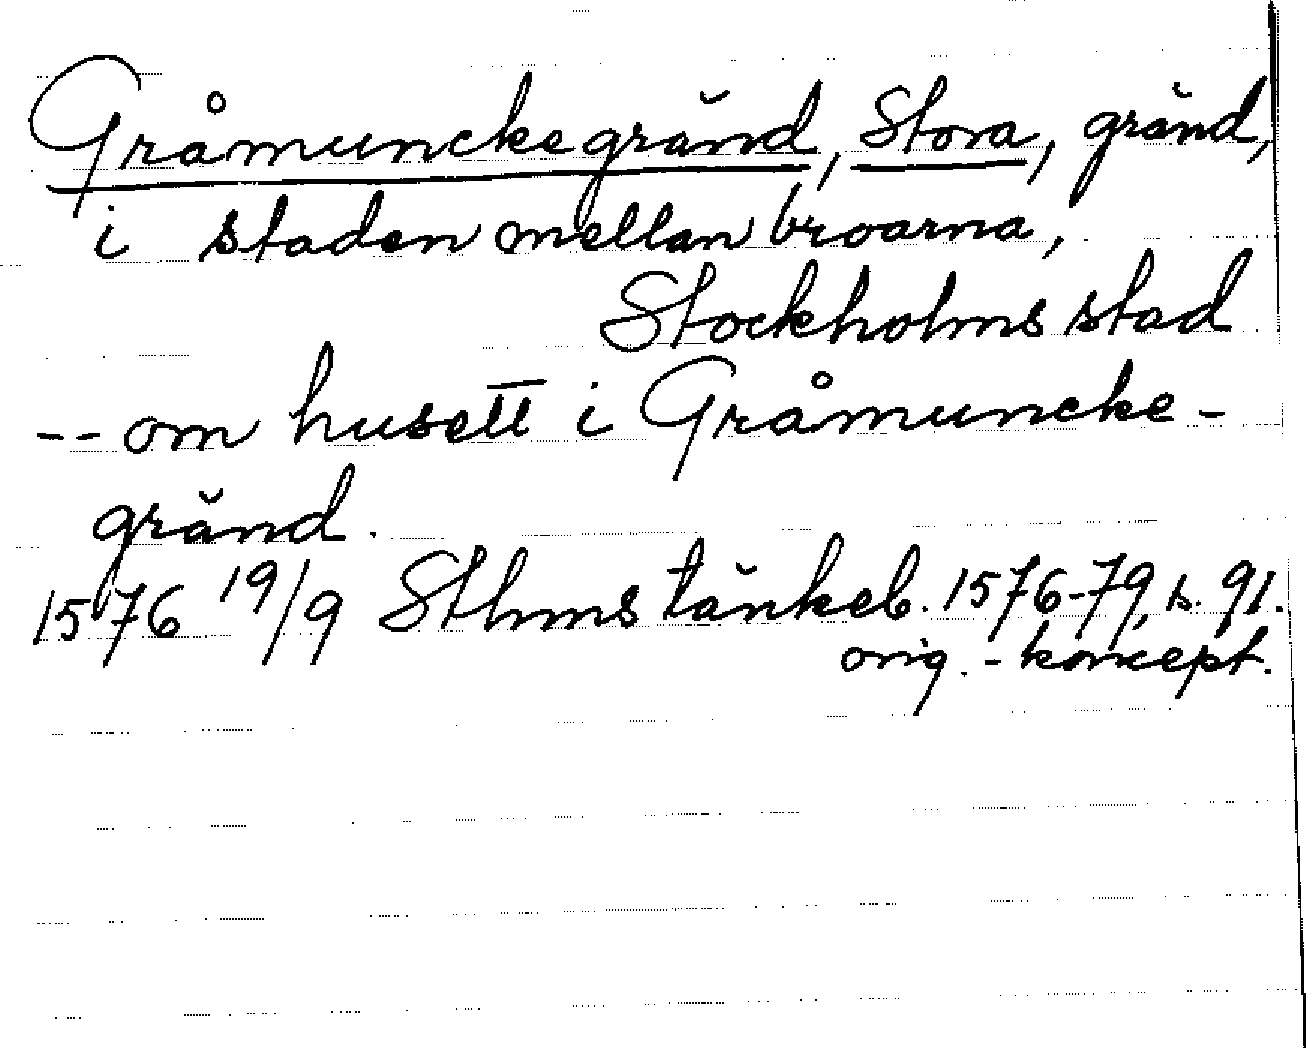 Gråmunckegränd, Stora, gränd,
i staden mellan broarna,
Stockholms stad
-- om husett i Gråmuncke-
gränd.
1576 19/9 Sthms tänkeb. 1576-79, s. 91.
orig. - koncept.